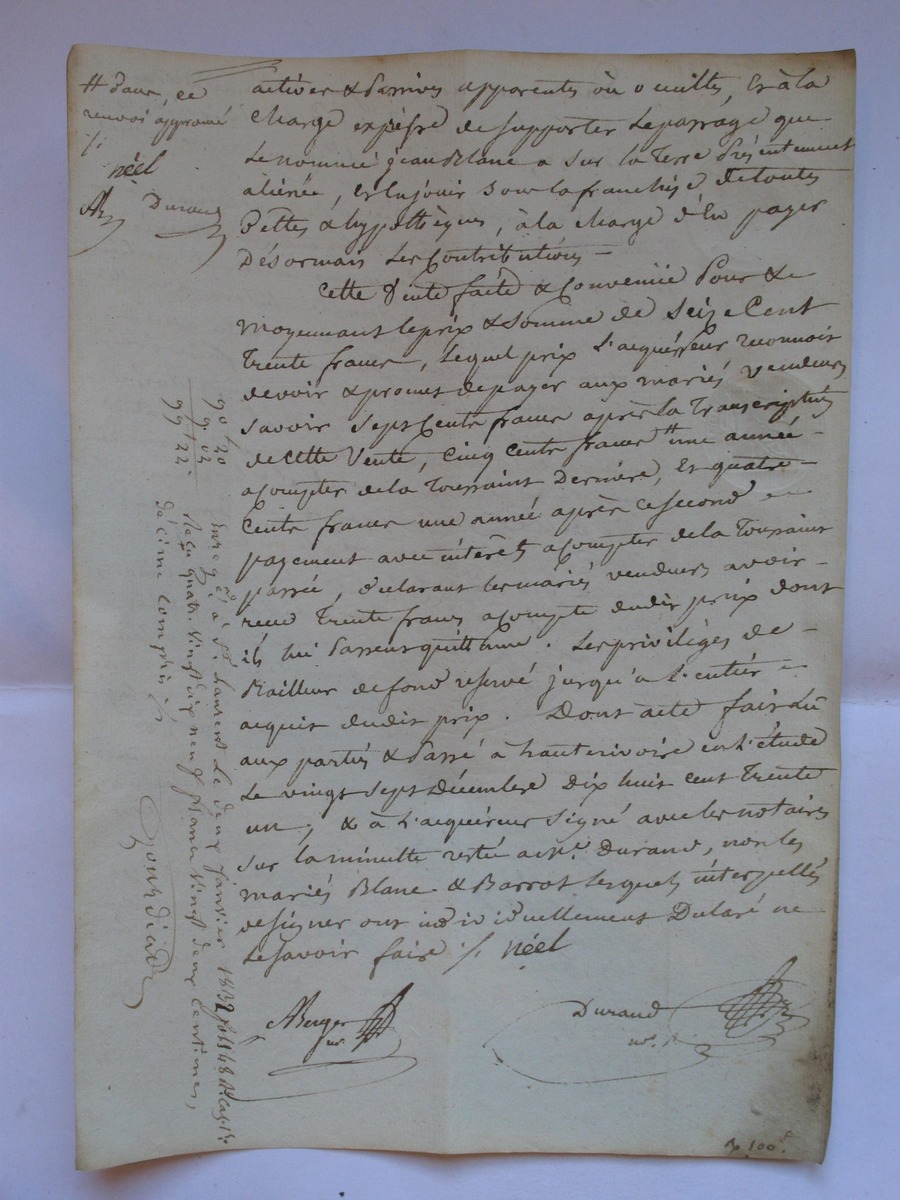 # dans, ce
renvoi approuvé
·/.
néel
AB
Durand
actives & passives apparentes ou occultes, Et à la
charge expresse de supporter le passage que
Le nommé jean Blanc a sur la Terre présentement
aliénée, Et en jouir sous la franchise de toutes
Dettes & hypothèques, à la charge d'En payer
Désormais Les Contributions —
Cette Vente faite & Convenue Pour &
moyennant le prix & somme de Seize Cent
Trente francs, Lequel prix L'acquéreur reconnoit
devoir & promet de payer aux mariés vendeurs
Savoir Sept Cents francs après la Transcription
de cette Vente, Cinq Cents francs # une année
acompter de la Toussaint Dernière, Et quatre
Cents francs une année après ce second
payement avec intérêts acompter de la Toussaint
passée, déclarant les mariés vendeurs avoir
reçu Trente francs acompte dudit prix dont
ils lui Passent quittance. Les privilèges de
Bailleur de fond reservé jusqu'à L'entier
acquit dudit prix. Dont acte fait Lû
aux parties & Passé à hauterivoire en L'étude
Le vingt Sept Décembre Dix huit cent Trente
un, & à L'acquéreur Signé avec les notaires
Sur la minutte restée a Me. Durand, non les
mariés Blanc & Barrot Lesquels interpellés
de signer ont individuellement Déclaré ne
Le savoir faire ·/. néel
ABerger
no.
Durand
no.
90 /20
9. 02
99 22.
Enreg é à St. Laurent Le deux janvier 1832 fo 148
Reçu quatre Vingt dix neuf francs Vingt deux Centimes,
décime compris
p. 100